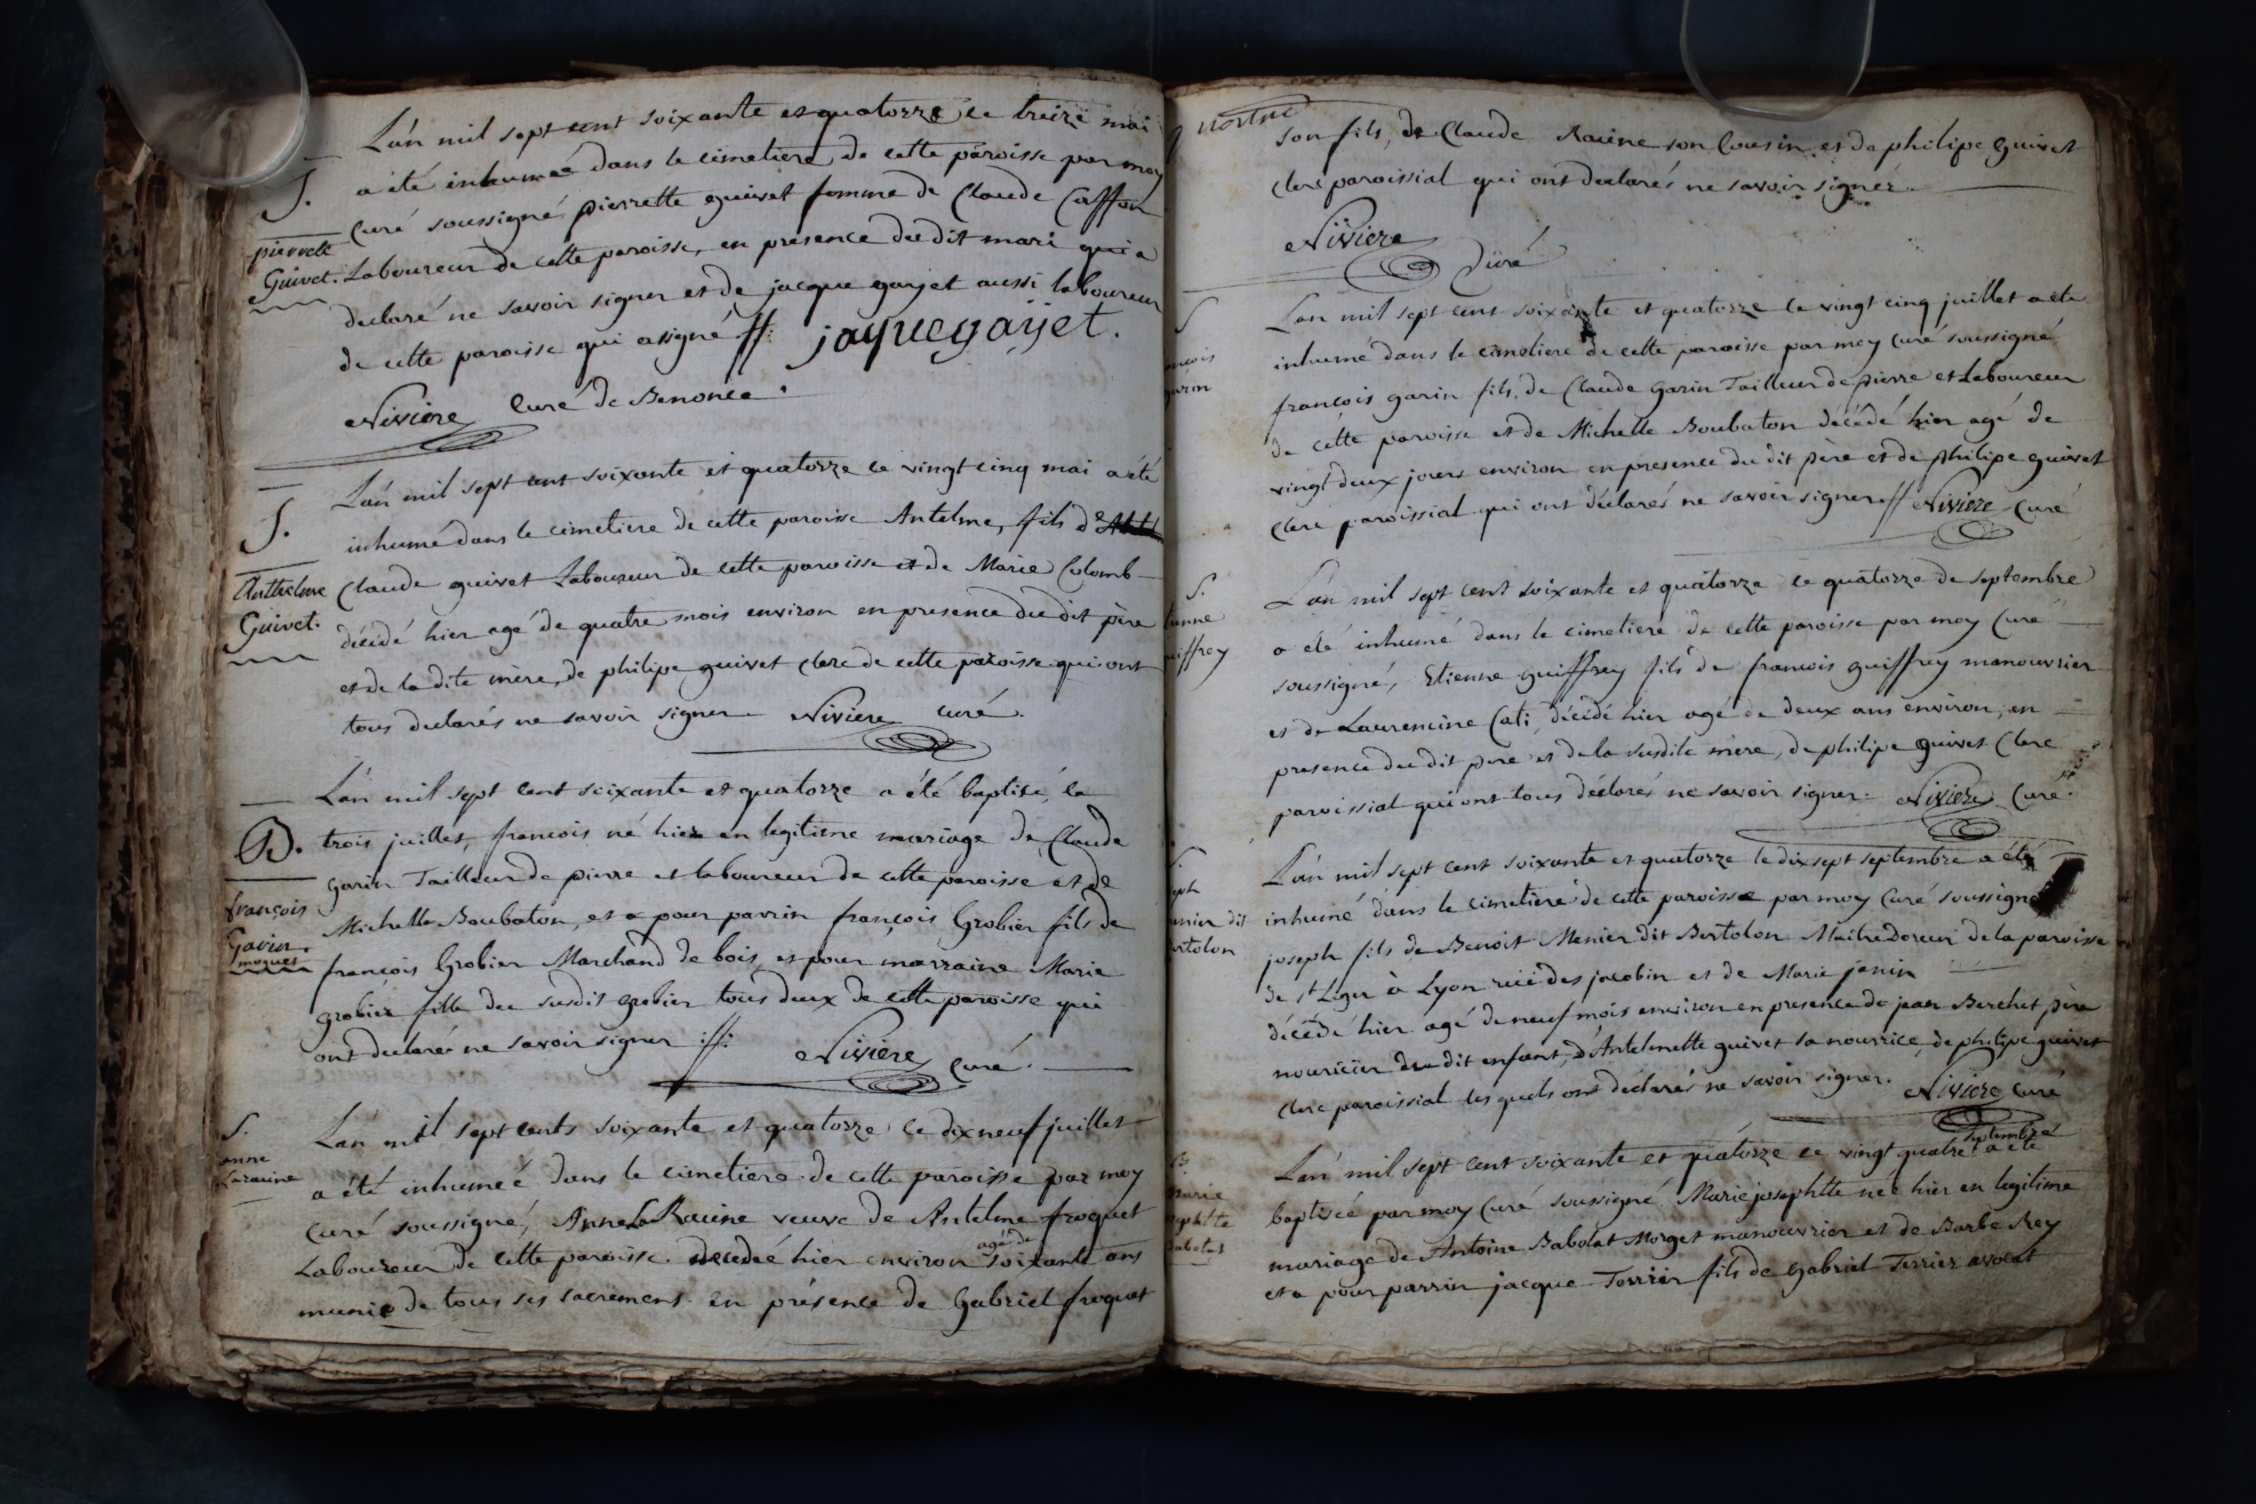 L'an mil sept cent soixante et quatorze le treize mai
a été inhumée dans le cimetiere de cette paroisse par moy
S.
curé soussigné pierrette guivet femme de Claude Caffon
pierrette
Guivet.
Laboureur de cette paroisse, en presence du dit mari qui a
declaré ne savoir signer et de jacque gayet aussi laboureur
de cette paroisse qui a signé //: jaque gayjet.
Niviere Curé de Benonce.
L'an mil sept cent soixante et quatorze le vingt cinq mai a été
S.
inhumé dans le cimetiere de cette paroisse Antelme, fils de
Anthelme
Guivet.
Claude guivet Laboureur de cette paroisse et de Marie Colomb
décédé hier agé de quatre mois environ en presence du dit père
et de la dite mère, de philipe guivet clerc de cette paroisse qui ont
tous declarés ne savoir signer Niviere curé.
L'an mil sept cent soixante et quatorze a été baptisé, le
B.
trois juillet, francois né hier en legitime mariage de Claude
françois
Garin.
moguet
garin Tailleur de pierre et laboureur de cette paroisse et de
Michelle Boubaton, et a pour parrin françois Grobier fils de
françois Grobier Marchand de bois, et pour marraine Marie
grobier fille du susdit grobier tous deux de cette paroisse qui
ont declarés ne savoir signer //: Niviere curé.
S.
anne
Laraине
L'an mil sept cents soixante et quatorze le dix neuf juillet
a été inhumée dans le cimetiere de cette paroisse par moy
curé soussigné, Anne La Racine veuve de Antelme froquet
Laboureur de cette paroisse decedée hier environ agé de soixante ans
munie de tous ses sacremens en présence de Gabriel froquet
son fils, de Claude Racine son Cousin et de philipe guivet
clerc paroissial qui ont declarés ne savoir signer.
Niviere Curé
S
L'an mil sept cent soixante et quatorze le vingt cinq juillet a été
inhumé dans le cimetiere de cette paroisse par moy curé soussigné
francois garin fils de Claude garin Tailleur de pierre et Laboureur
de cette paroisse et de Michelle Boubaton décédé hier agé de
vingt deux jours environ en presence du dit père et de philipe guivet
clerc paroissial qui ont déclarés ne savoir signer // Niviere Curé
S.
L'an mil sept cent soixante et quatorze le quatorze de septembre
a été inhumé dans le cimetiere de cette paroisse par moy Curé
soussigné, Etienne guiffrey fils de francois guiffrey manouvrier
et de Laurencine Cati, décédé hier agé de deux ans environ, en
presence du dit pere et de la susdite mère, de philipe guivet Clerc
paroissial qui ont tous déclarés ne savoir signer. Niviere Curé.
L'an mil sept cent soixante et quatorze le dix sept septembre a été
inhumé dans le cimetiere de cette paroisse par moy Curé soussigné
joseph fils de Benoit Menier dit Bertolon Maitre doreur de la paroisse
de St Leger à Lyon ruë des jacobin et de Marie janin
décédé hier agé de neuf mois environ en presence de jean Berchet père
nouricier du dit enfant, d'Antelmette guivet sa nourrice, de philipe guivet
clerc paroissial les quels ont declarés ne savoir signer. Niviere curé
B.
L'an mil sept cent soixante et quatorze le vingt quatre septembre a été
baptisée par moy Curé soussigné Marie josephtte née hier en legitime
mariage de Antoine Babolat Morget manouvrier et de Barbe Rey
et a pour parrin jacque Terrier fils de gabriel Terrier avocat